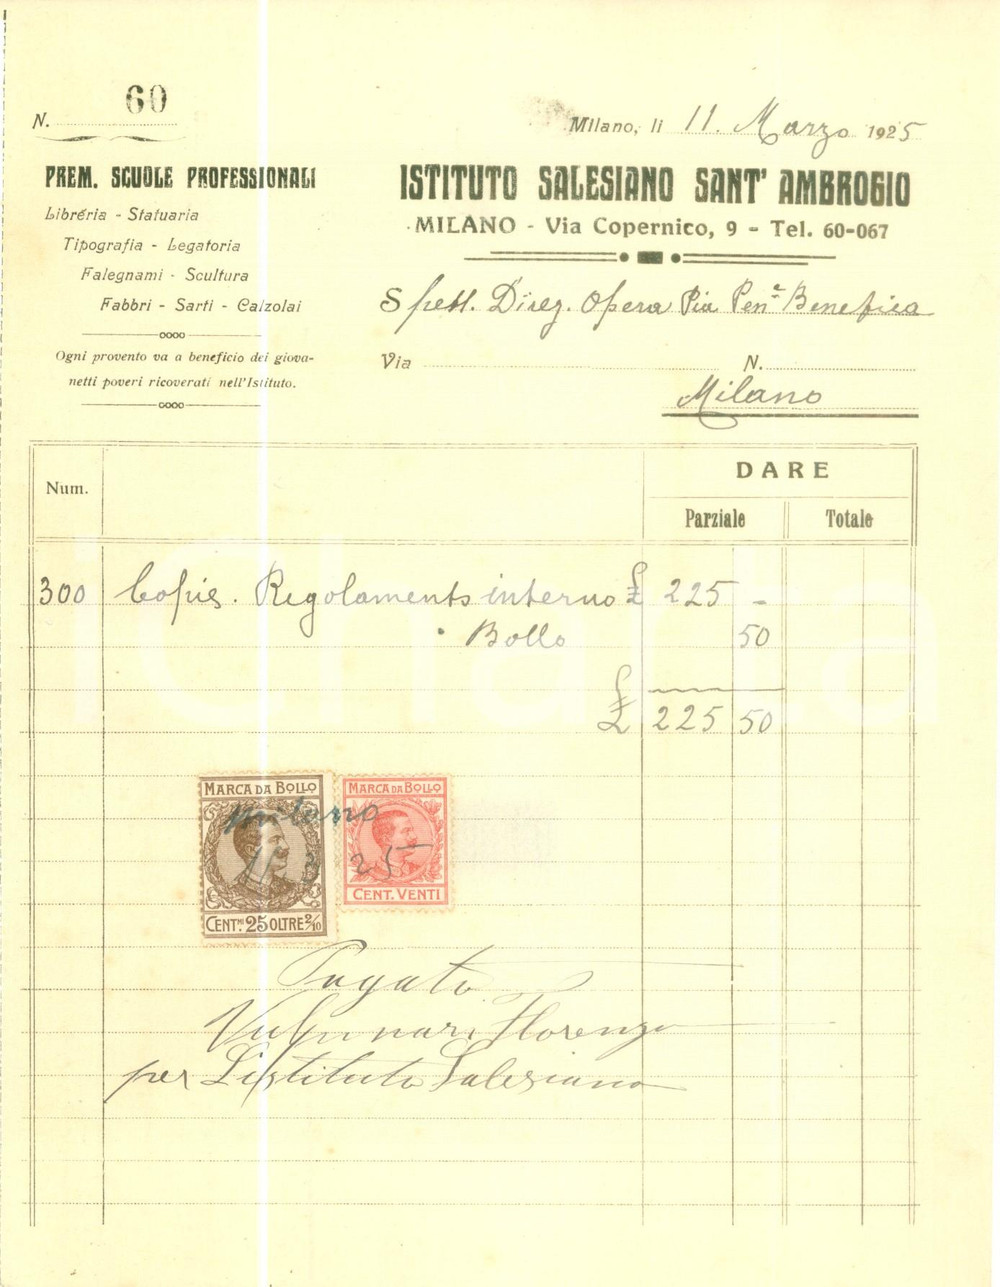 N. 60
Milano, li 11. Marzo 1925
PREM. SCUOLE PROFESSIONALI
Libréria - Statuaria
Tipografia - Legatoria
Falegnami - Scultura
Fabbri - Sarti - Calzolai
Ogni provento va a beneficio dei giova-
netti poveri ricoverati nell'Istituto.
ISTITUTO SALESIANO SANT' AMBROGIO
MILANO - Via Copernico, 9 - Tel. 60-067
Spett. Direz. Opera Pia Pen.e Benefica
Via N.
Milano
Num.
DARE
Parziale Totale
300 Copie. Regolamento interno £ 225 -
Bollo 50
£ 225 50
MARCA DA BOLLO
CENT.MI 25 OLTRE 2/10
MARCA DA BOLLO
CENT. VENTI
Milano
11 3 25
Pagato
per L'istituto Salesiano
iCharta